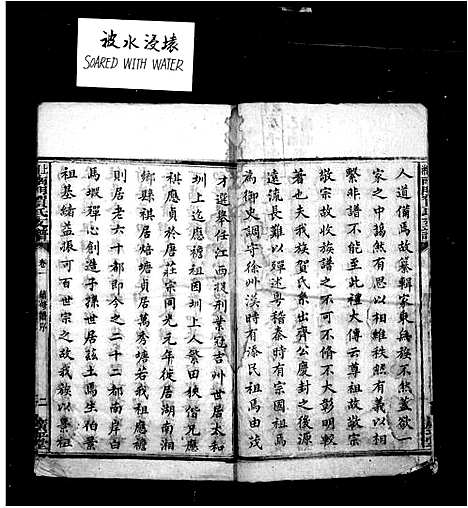 被水浸壊
SOARED WITH WATER
人道備焉故纂輯家乘為族不然蓋欲一
家之中藹然有恩以相維秩然有義以相
繫非譜不能至此禮大傳云尊祖故敬宗
敬宗故收族譜之不可不脩不大彰明較
著也夫我族賀氏系出齊公慶封之後源
遠流長難以殫述粵稽秦時有宗國祖焉
為御史調守徐州漢時有添民祖焉由茂
才選舉任江西提刑業冠吉州世居太和
圳上迄應禧祖因圳上人繁田狹偕兄應
祺應貞於唐莊宗同光元年徙居湖南湘
鄉縣祺居焙塘貞居萬秀塘若我祖應禧
則居老六十都即今之二十二都南岸白
馬塅殫心創造子孫世居茲土馬生柏繁
祖基緒蓋振可百世宗之故我族以集祖
卷一